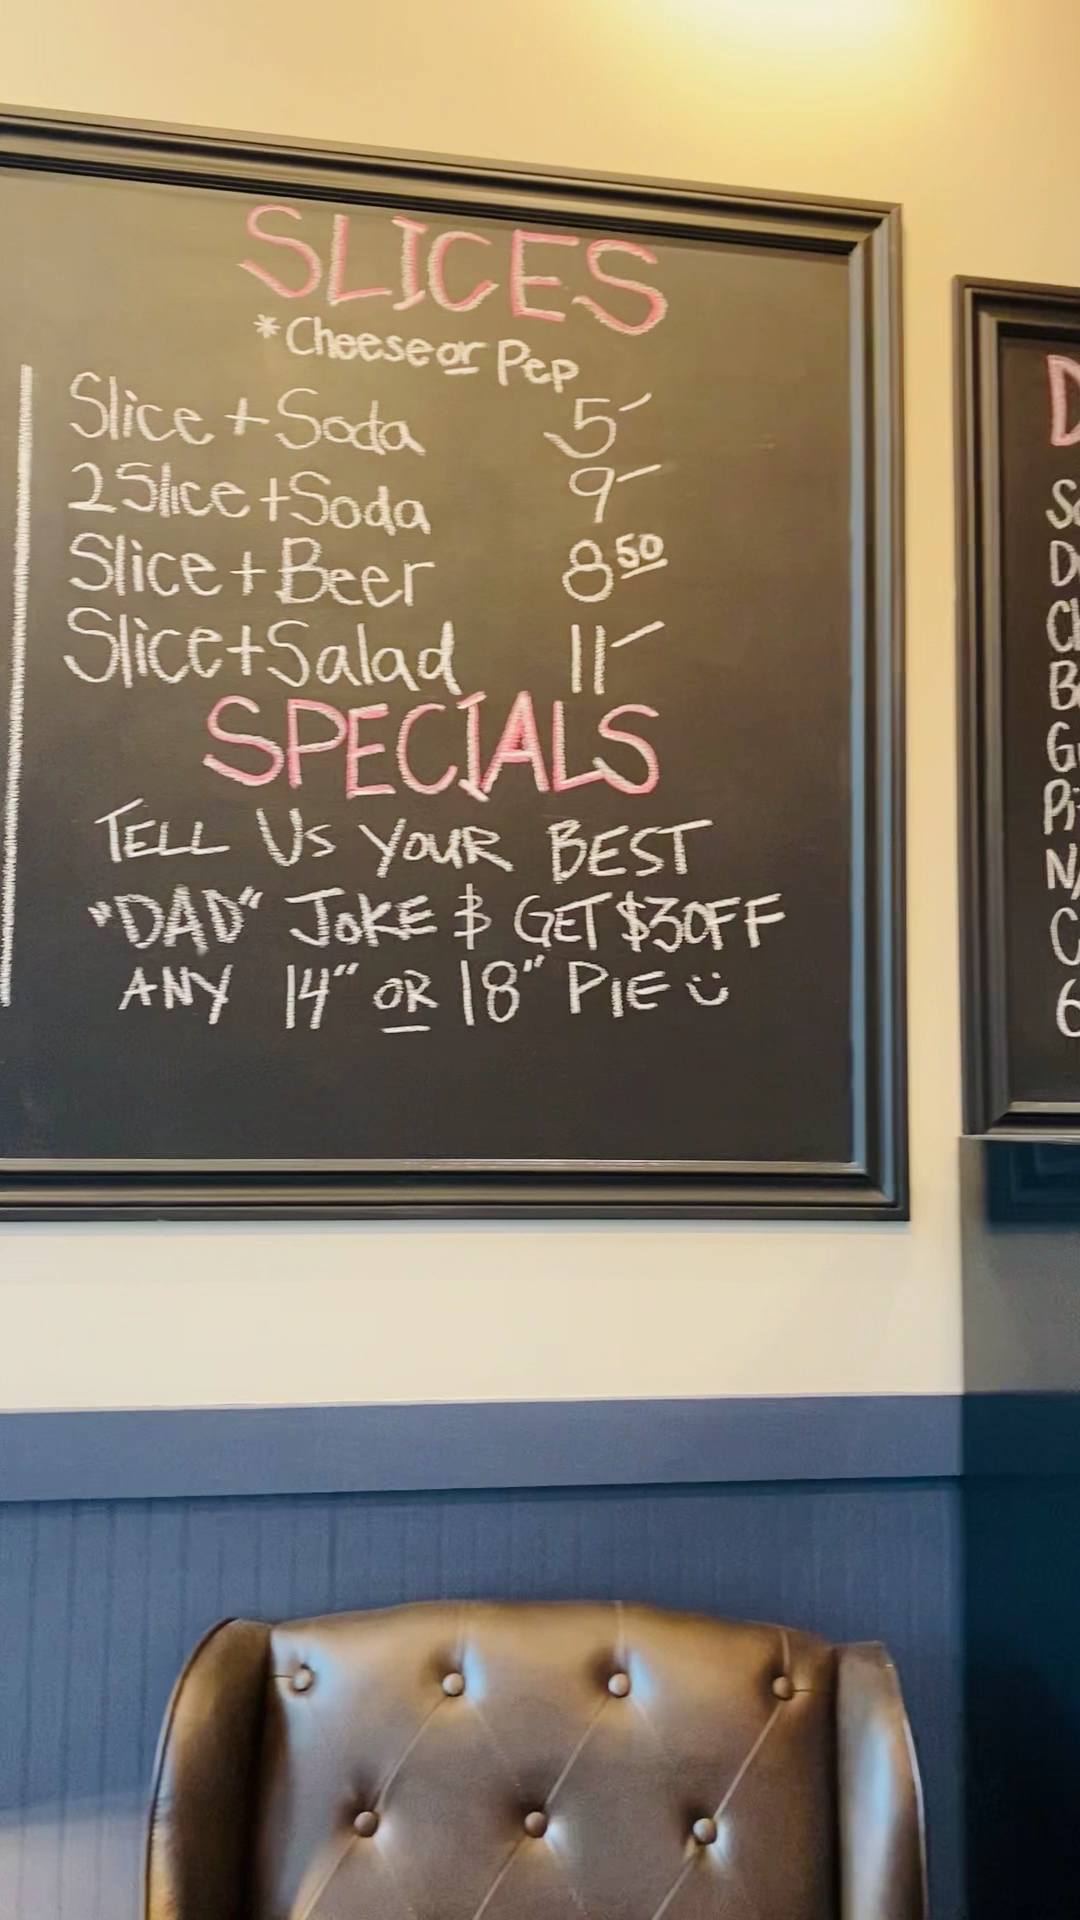 SLICES
*Cheese or Pep
Slice + Soda 5-
2 Slice + Soda 9-
Slice + Beer 8 50
Slice + Salad 11-
SPECIALS
TELL US YOUR BEST
"DAD" JOKE & GET $3 OFF
ANY 14" OR 18" PIE ü